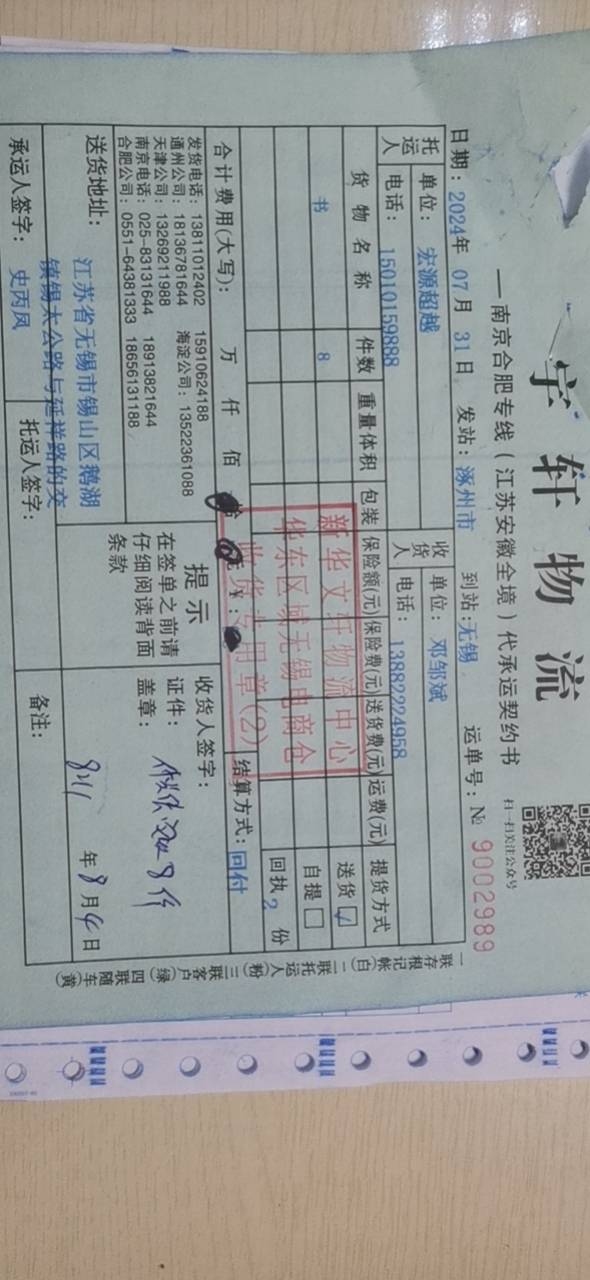 宇轩物流
—南京合肥专线(江苏安徽全境)代承运契约书
扫一扫关注公众号
日期: 2024年 07月 31日 发站: 涿州市 到站:无锡 运单号: № 9002989
托运人 单位: 宏源超越 收货人 单位: 邓邹斌
电话: 15010159888 电话: 13882224958
货物名称 件数 重量体积 包装 保险额(元) 保险费(元) 送货费(元) 运费(元) 提货方式
书 8 送货 ☑
自提 □
回执 2 份
新华文轩物流中心
华东区域无锡电商仓
收货专用章(2)
合计费用(大写): 万 仟 佰 结算方式: 回付
发货电话: 13811012402 15910624188
通州公司: 18136781644 海淀公司: 13522361088
天津公司: 13269211988
南京电话: 025-83131644 18913821644
合肥公司: 0551-64381333 18656131188
提示
在签单之前请
仔细阅读背面
条款
收货人签字:
证件:
盖章:
送货地址: 江苏省无锡市锡山区鹅湖
镇锡太公路与延祥路的交
年 8月 4日
承运人签字: 史丙凤 托运人签字: 备注:
一联存根记帐(白) 二联托运人(粉) 三联客户(绿) 四联随车(黄)